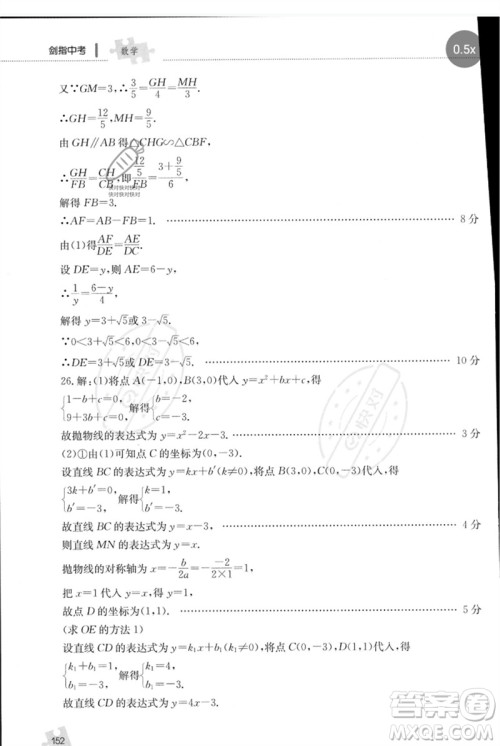 剑指中考 数学
0.5x
又∵GM=3,∴3/5=GH/4=MH/3.
∴GH=12/5,MH=9/5.
由GH∥AB得△CHG∽△CBF,
∴GH/FB=CH/CB,即(12/5)/FB=(3+9/5)/6,
快对快对快对
快对快对快对
解得FB=3.
∴AF=AB-FB=1. 8分
由(1)得AF/DE=AE/DC.
设DE=y,则AE=6-y,
∴1/y=(6-y)/4,
解得y=3+√5或3-√5.
∵0<3+√5<6,0<3-√5<6,
∴DE=3+√5或3-√5. 10分
26.解:(1)将点A(-1,0),B(3,0)代入y=x²+bx+c,得
{1-b+c=0, 9+3b+c=0, 解得{b=-2, c=-3.
故抛物线的表达式为y=x²-2x-3. 3分
(2)①由(1)可知点C的坐标为(0,-3).
设直线BC的表达式为y=kx+b′(k≠0),将点B(3,0),C(0,-3)代入,得
{3k+b′=0, b′=-3, 解得{k=1, b′=-3.
故直线BC的表达式为y=x-3. 4分
则直线MN的表达式为y=x.
抛物线的对称轴为x=-b/2a=-(-2)/(2×1)=1,
把x=1代入y=x,得y=1,
故点D的坐标为(1,1). 5分
(求OE的方法1)
设直线CD的表达式为y=k₁x+b₁(k₁≠0),将点C(0,-3),D(1,1)代入,得
{k₁+b₁=1, b₁=-3, 解得{k₁=4, b₁=-3.
故直线CD的表达式为y=4x-3.
152
作业帮
MXEQ.COM